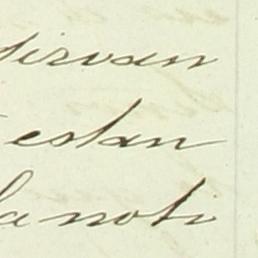 sirvan
estan
la noti